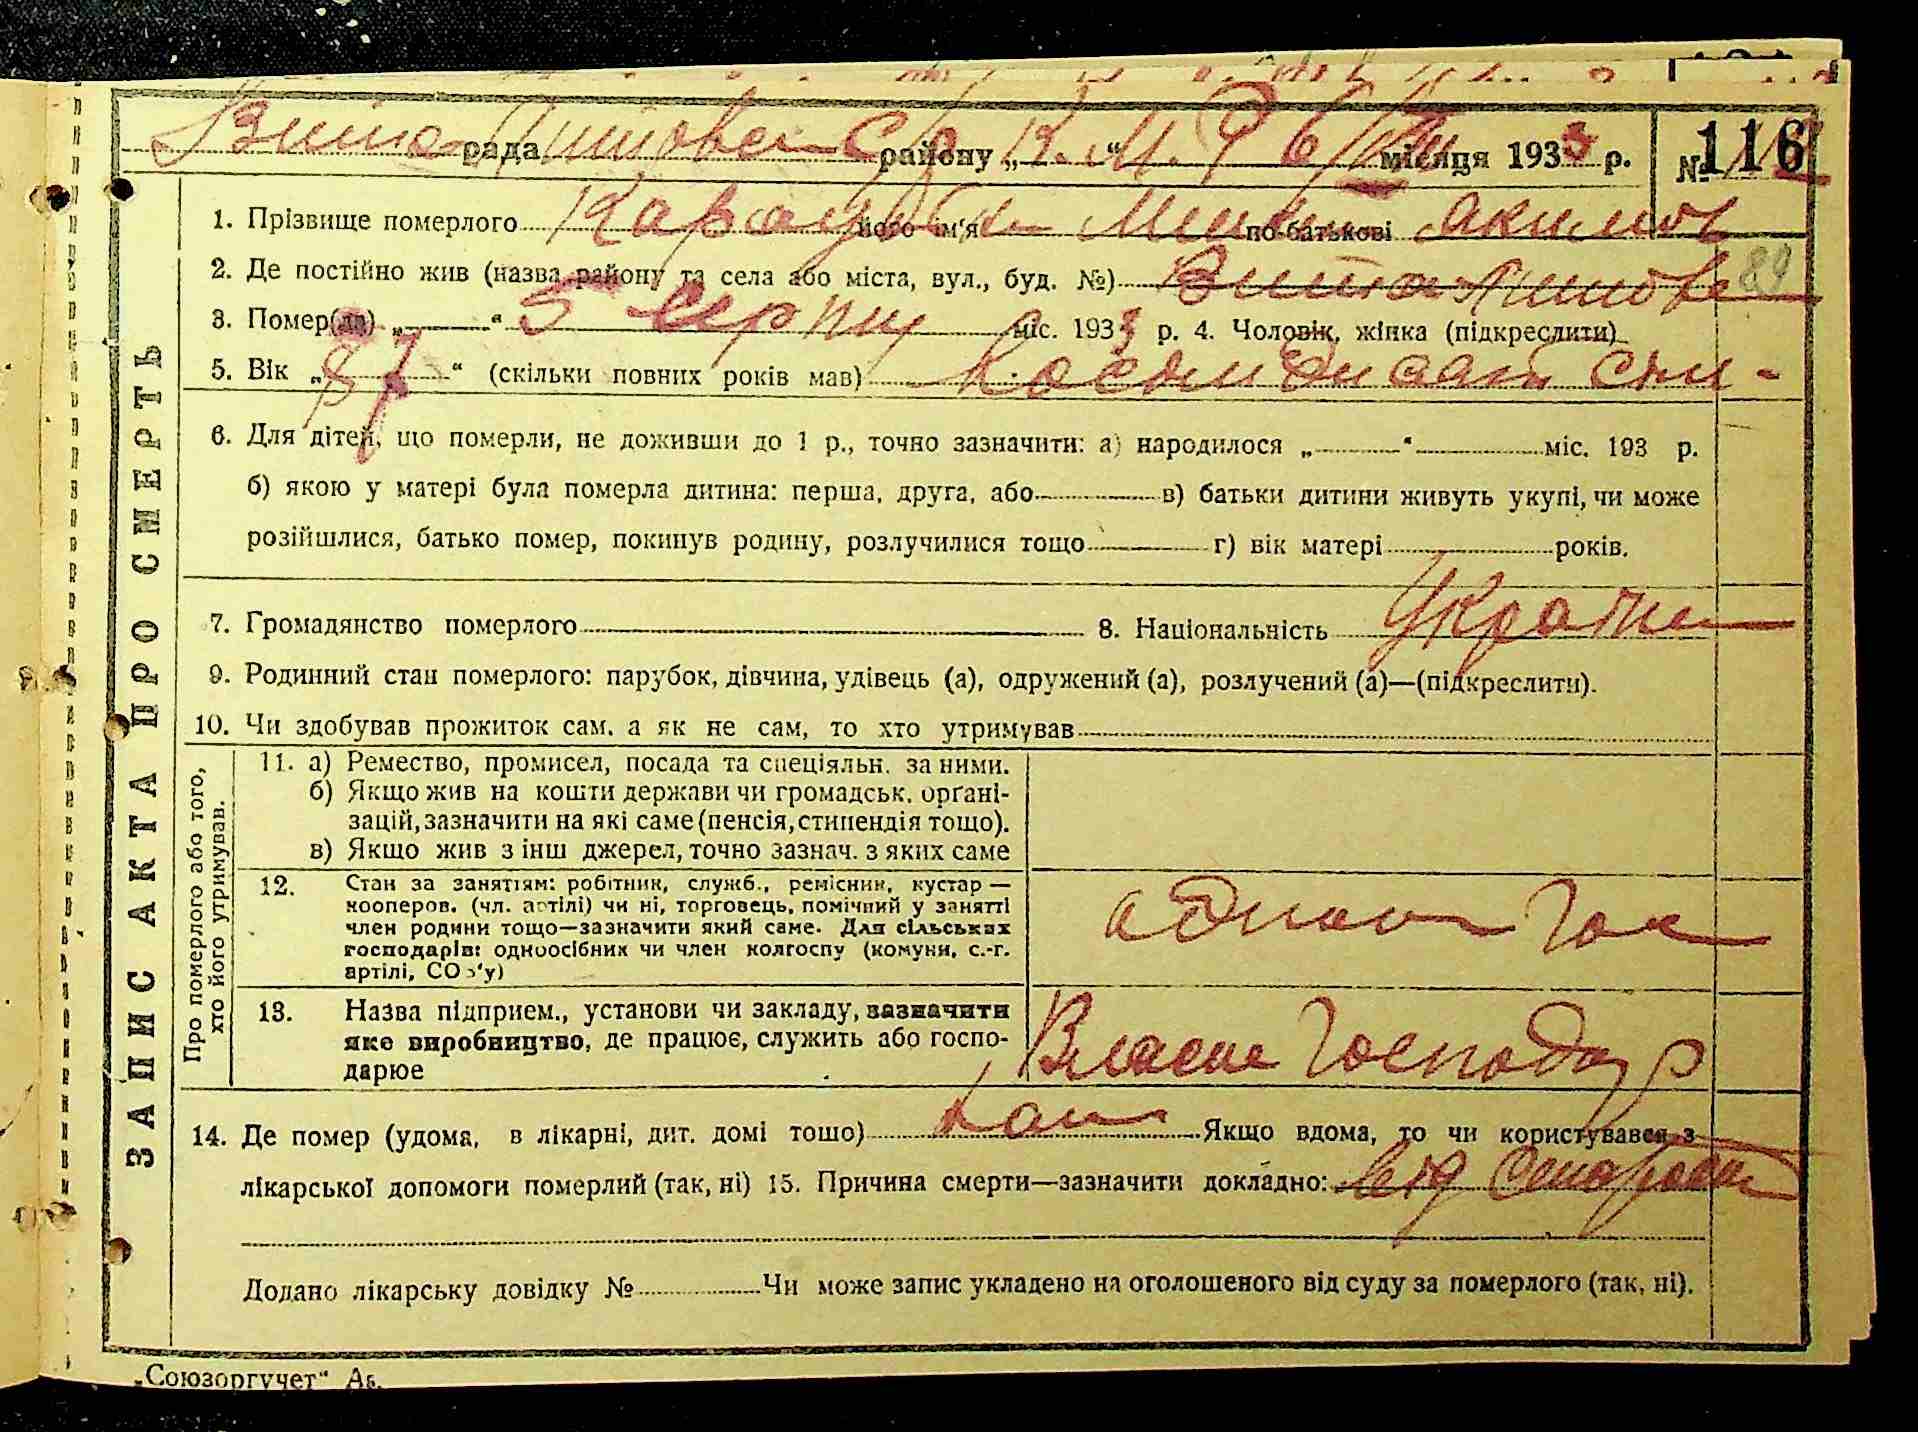 Вита Пошто рада район К. М. Р 6/VIII місяця 1933 р. № 116
ЗАПИС АКТА ПРО СМЕРТЬ
1. Прізвище померлого його ім'я по-батькові
2. Де постійно жив (назва району та села або міста, вул., буд. №) Вита 89
3. Помер(ла) „ “ 5 серпня міс. 1933 р. 4. Чоловік, жінка (підкреслити)
5. Вік „ 87 “ (скільки повних років мав)
6. Для дітей, що померли, не доживши до 1 р., точно зазначити: а) народилося „ “ міс. 193 р.
б) якою у матері була померла дитина: перша, друга, або в) батьки дитини живуть укупі, чи може
розійшлися, батько помер, покинув родину, розлучилися тощо г) вік матері років.
7. Громадянство померлого 8. Національність Україн
9. Родинний стан померлого: парубок, дівчина, удівець (а), одружений (а), розлучений (а)—(підкреслити).
10. Чи здобував прожиток сам, а як не сам, то хто утримував
Про померлого або того,
хто його утримував.
11. а) Ремество, промисел, посада та спеціяльн. за ними.
б) Якщо жив на кошти держави чи громадськ. орґані-
зацій, зазначити на які саме (пенсія, стипендія тощо).
в) Якщо жив з інш джерел, точно зазнач. з яких саме
12. Стан за заняттям: робітник, служб., ремісник, кустар —
кооперов. (чл. артілі) чи ні, торговець, помічний у занятті
член родини тощо—зазначити який саме. Для сільських
господарів: одноосібник чи член колгоспу (комуни, с.-г.
артілі, СОЗ'у)
13. Назва підприєм., установи чи закладу, зазначити
яке виробництво, де працює, служить або госпо-
дарюе
Власне Господар
14. Де помер (удома, в лікарні, дит. домі тощо) Якщо вдома, то чи користувався з
лікарської допомоги померлий (так, ні) 15. Причина смерти—зазначити докладно: від старости
Додано лікарську довідку № Чи може запис укладено на оголошеного від суду за померлого (так, ні).
„Союзоргучет“